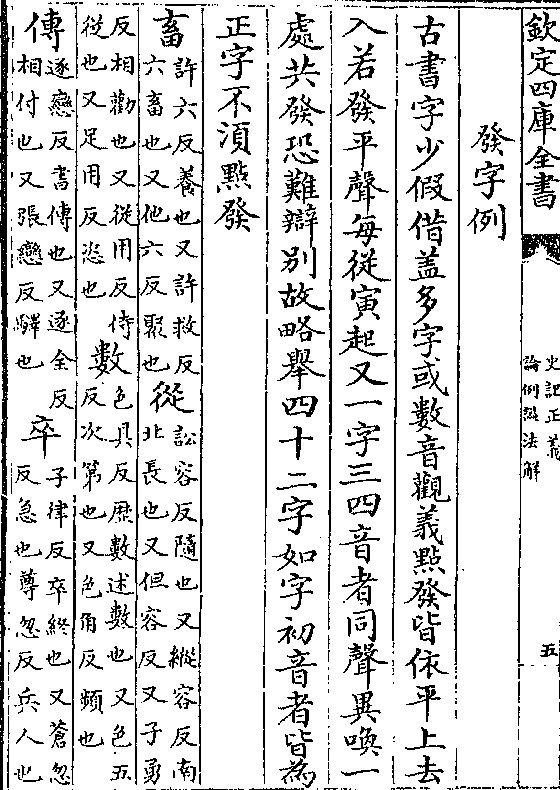 欽定四庫全書
史記正義
論例諡法解
五
發字例
古書字少假借盖多字或數音觀義點發皆依平上去
入若發平聲每從寅起又一字三四音者同聲異喚一
處共發恐難辯别故略舉四十二字如字初音者皆為
正字不須點發
畜許六反養也又許救反
六畜也又他六反聚也從訟容反隨也又縱容反南
北長也又但容反又子勇
反相勸也又從用反侍
從也又足用反恣也數色具反厯數述數也又色五
反次第也又色角反頻也
傳逐戀反書傳也又逐全反
相付也又張戀反驛也卒子律反卒終也又蒼忽
反急也尊忽反兵人也